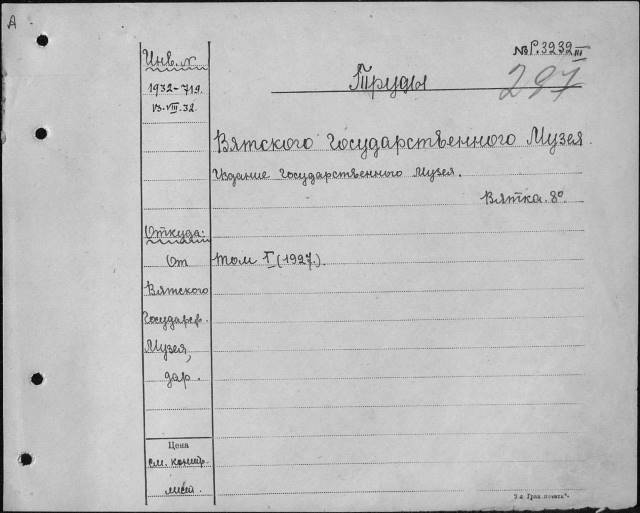 А
Инв. №
1932-719
13.VIII.32
№Р.3232 III
297
Труды
Вятского Государственного Музея.
Издание Государственного Музея.
Вятка. 8º.
Откуда:
От
Вятского
Государств.
Музея,
дар.
том I (1927.)
Цена
см. контр.
лист.